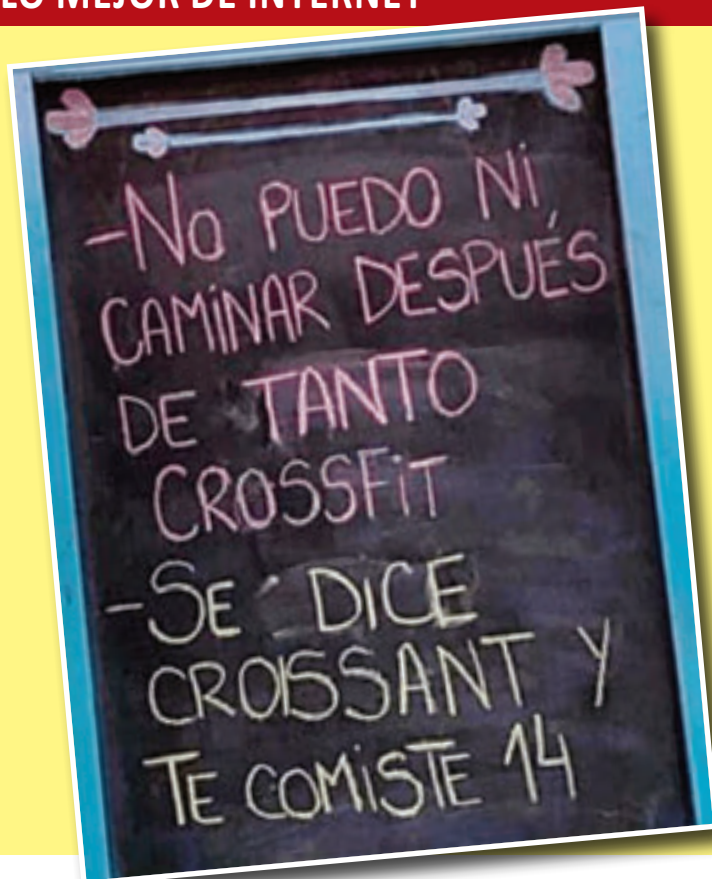 LO MEJOR DE INTERNET
-No PUEDO Ni
CAMiNAR DESPUÉS
DE TANTO
CROSSFiT
-SE DICE
CROISSANT Y
TE COMiSTE 14